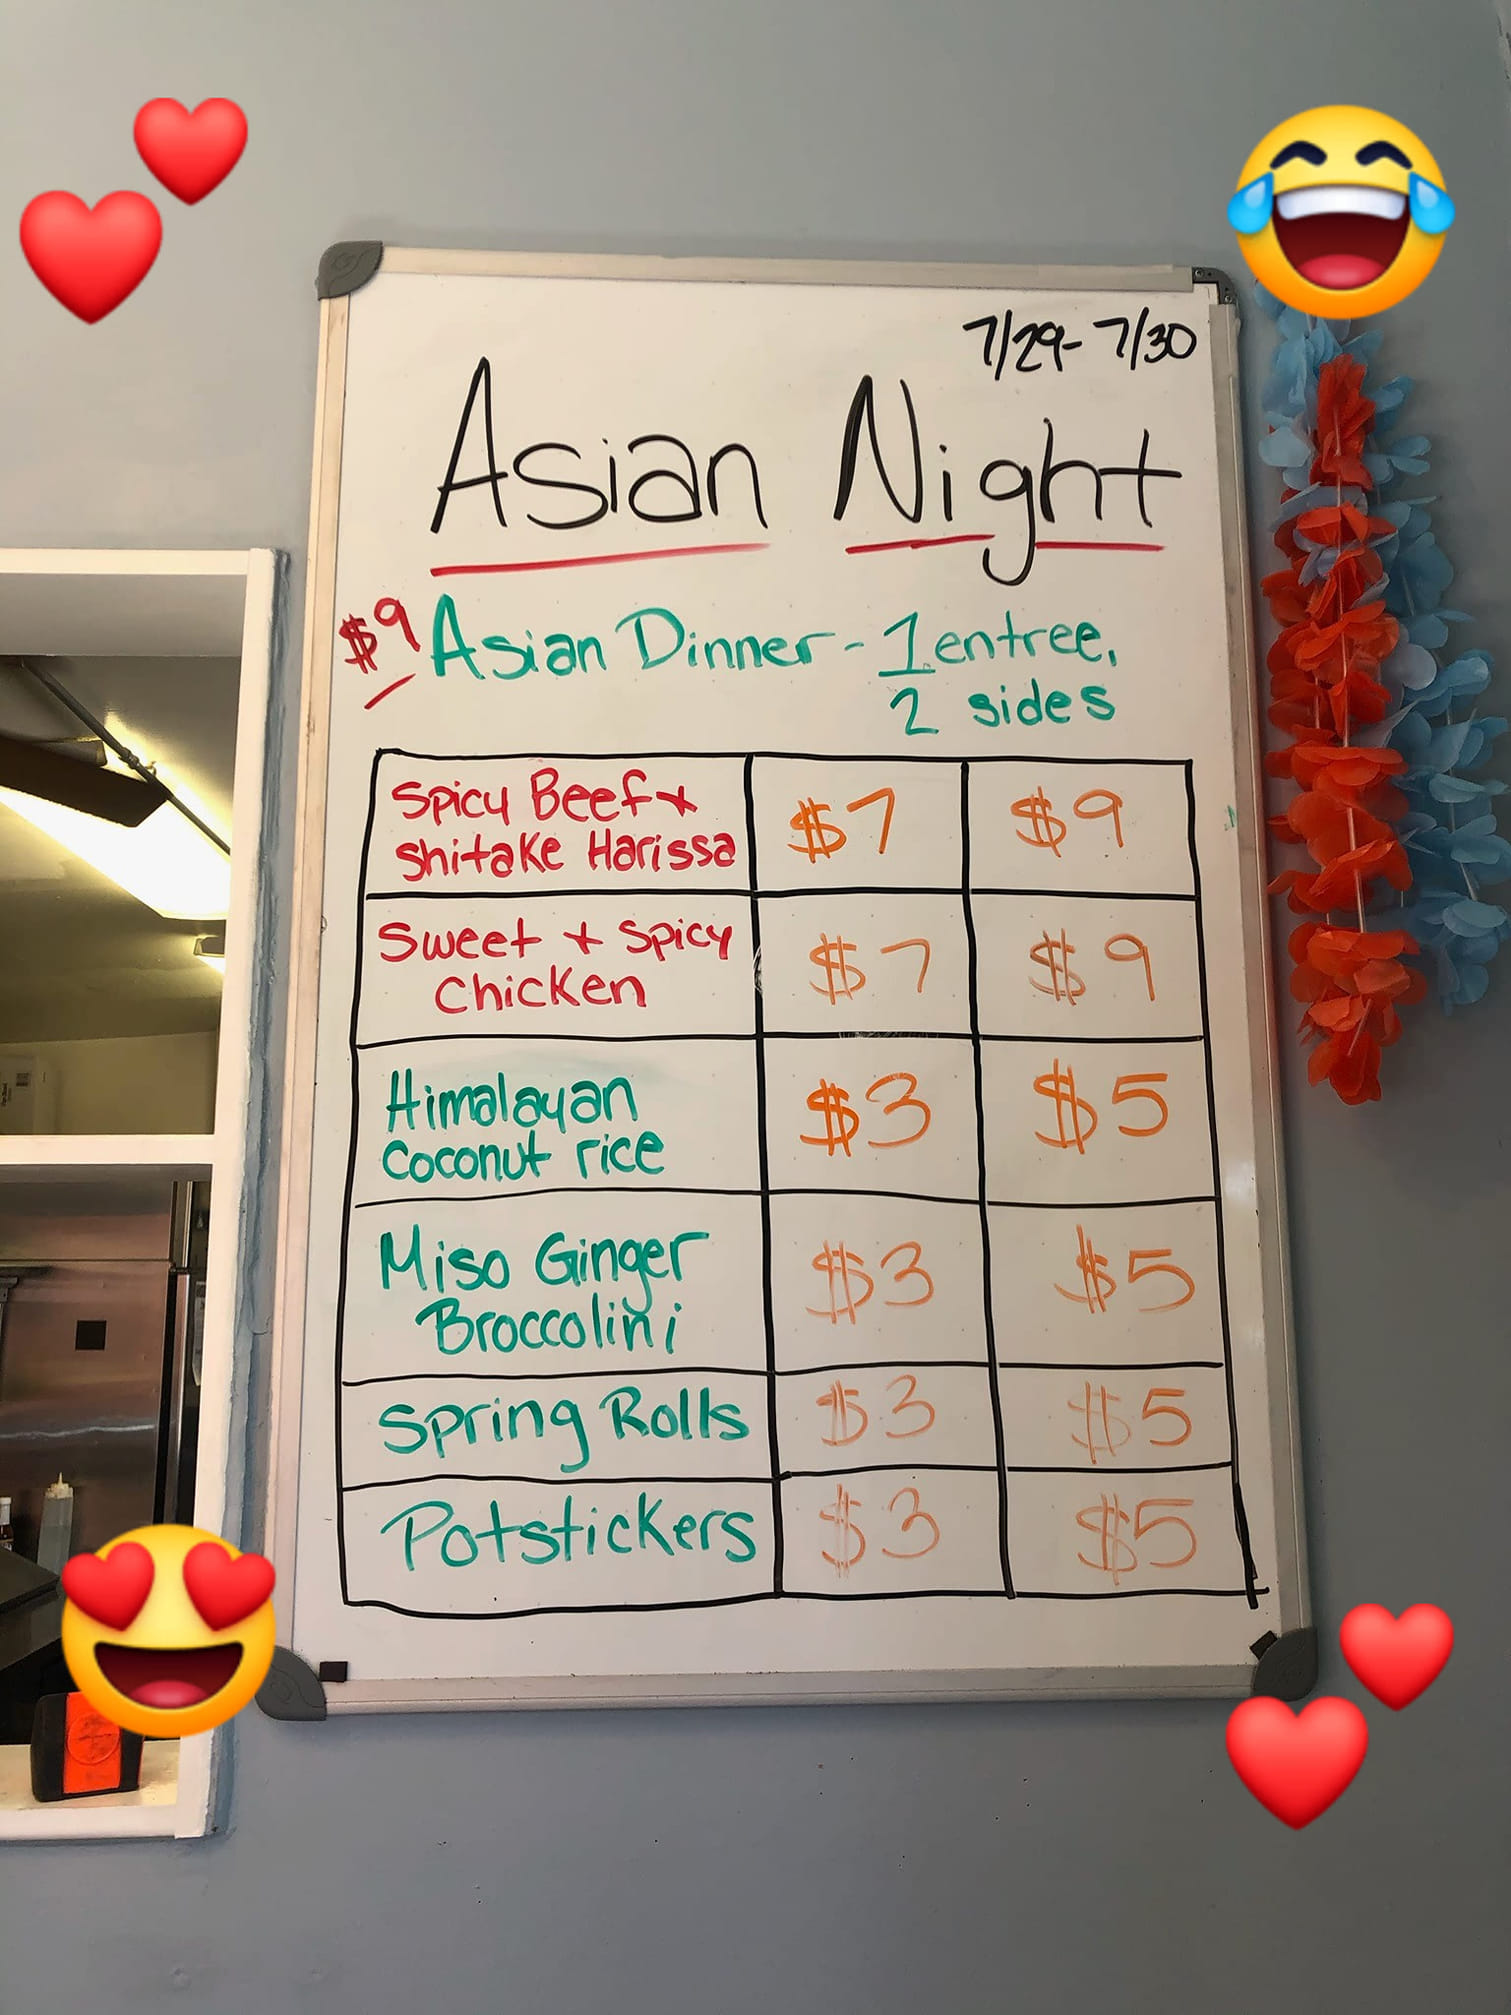 7/29-7/30
Asian Night
$9 Asian Dinner - 1 entree,
2 sides
Spicy Beef +
shitake Harissa
$7
$9
Sweet + Spicy
Chicken
$7
$9
Himalayan
Coconut rice
$3
$5
Miso Ginger
Broccolini
$3
$5
Spring Rolls
$3
$5
Potstickers
$3
$5